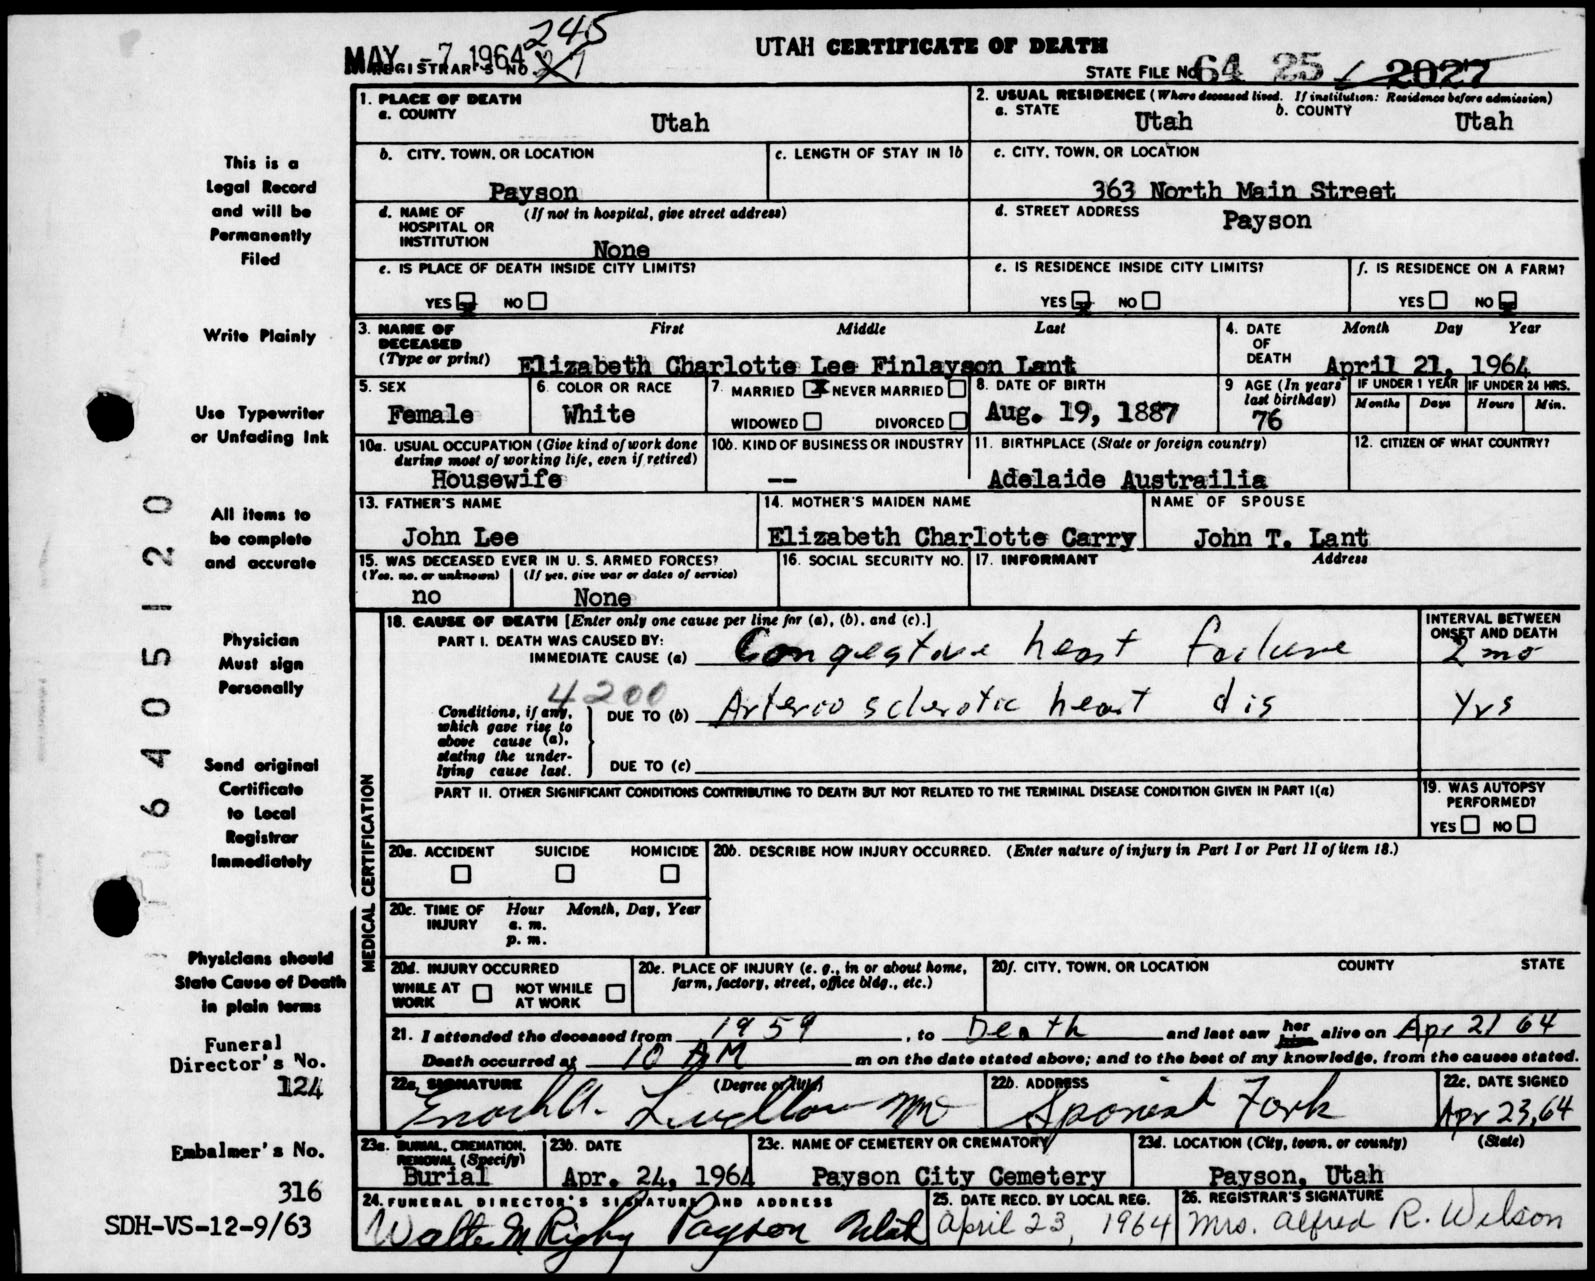 245
MAY -7 1964
REGISTRAR'S NO. 27
UTAH CERTIFICATE OF DEATH
STATE FILE NO. 64 25 2027
This is a
Legal Record
and will be
Permanently
Filed
Write Plainly
Use Typewriter
or Unfading Ink
All items to
be complete
and accurate
Physician
Must sign
Personally
Send original
Certificate
to Local
Registrar
Immediately
Physicians should
State Cause of Death
in plain terms
Funeral
Director's No.
124
Embalmer's No.
316
SDH-VS-12-9/63
064051 20
1. PLACE OF DEATH
a. COUNTY
Utah
2. USUAL RESIDENCE (Where deceased lived. If institution: Residence before admission)
a. STATE Utah b. COUNTY Utah
b. CITY, TOWN, OR LOCATION
Payson
c. LENGTH OF STAY IN 1b
c. CITY, TOWN, OR LOCATION
363 North Main Street
d. NAME OF HOSPITAL OR INSTITUTION (If not in hospital, give street address)
None
d. STREET ADDRESS
Payson
e. IS PLACE OF DEATH INSIDE CITY LIMITS?
YES x NO
e. IS RESIDENCE INSIDE CITY LIMITS?
YES x NO
f. IS RESIDENCE ON A FARM?
YES NO x
3. NAME OF DECEASED (Type or print) First Middle Last
Elizabeth Charlotte Lee Finlayson Lant
4. DATE OF DEATH Month Day Year
April 21, 1964
5. SEX
Female
6. COLOR OR RACE
White
7. MARRIED x NEVER MARRIED
WIDOWED DIVORCED
8. DATE OF BIRTH
Aug. 19, 1887
9 AGE (In years last birthday)
76
IF UNDER 1 YEAR
Months Days
IF UNDER 24 HRS.
Hours Min.
10a. USUAL OCCUPATION (Give kind of work done during most of working life, even if retired)
Housewife
10b. KIND OF BUSINESS OR INDUSTRY
--
11. BIRTHPLACE (State or foreign country)
Adelaide Austrailia
12. CITIZEN OF WHAT COUNTRY?
13. FATHER'S NAME
John Lee
14. MOTHER'S MAIDEN NAME
Elizabeth Charlotte Carry
NAME OF SPOUSE
John T. Lant
15. WAS DECEASED EVER IN U. S. ARMED FORCES?
(Yes, no, or unknown) (If yes, give war or dates of service)
no None
16. SOCIAL SECURITY NO.
17. INFORMANT Address
MEDICAL CERTIFICATION
18. CAUSE OF DEATH [Enter only one cause per line for (a), (b), and (c).]
PART I. DEATH WAS CAUSED BY:
IMMEDIATE CAUSE (a) Congestive heart failure
INTERVAL BETWEEN ONSET AND DEATH
2 mo
4200
Conditions, if any, which gave rise to above cause (a), stating the underlying cause last.
DUE TO (b) Arterio sclerotic heart dis
Yrs
DUE TO (c)
PART II. OTHER SIGNIFICANT CONDITIONS CONTRIBUTING TO DEATH BUT NOT RELATED TO THE TERMINAL DISEASE CONDITION GIVEN IN PART I(a)
19. WAS AUTOPSY PERFORMED?
YES NO
20a. ACCIDENT SUICIDE HOMICIDE
20b. DESCRIBE HOW INJURY OCCURRED. (Enter nature of injury in Part I or Part II of item 18.)
20c. TIME OF INJURY Hour Month, Day, Year
a. m.
p. m.
20d. INJURY OCCURRED
WHILE AT WORK NOT WHILE AT WORK
20e. PLACE OF INJURY (e. g., in or about home, farm, factory, street, office bldg., etc.)
20f. CITY, TOWN, OR LOCATION COUNTY STATE
21. I attended the deceased from 1959, to Death and last saw her him alive on Apr 21 64
Death occurred at 10 AM m on the date stated above; and to the best of my knowledge, from the causes stated.
22a. SIGNATURE (Degree or title)
Enoch A. Ludlow MD
22b. ADDRESS
Spanish Fork
22c. DATE SIGNED
Apr 23, 64
23a. BURIAL, CREMATION, REMOVAL (Specify)
Burial
23b. DATE
Apr. 24, 1964
23c. NAME OF CEMETERY OR CREMATORY
Payson City Cemetery
23d. LOCATION (City, town, or county) (State)
Payson, Utah
24. FUNERAL DIRECTOR'S SIGNATURE AND ADDRESS
Walter M Rigby Payson Utah
25. DATE RECD. BY LOCAL REG.
April 23, 1964
26. REGISTRAR'S SIGNATURE
Mrs. Alfred R. Wilson